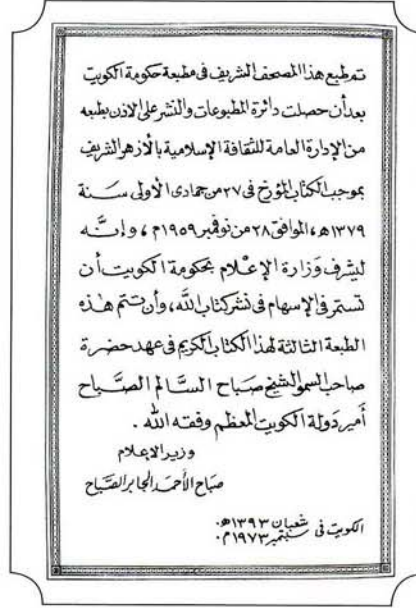 تم طبع هذا المصحف الشريف فى مطبعة حكومة الكويت
بعد أن حصلت دائرة المطبوعات والنشر على الاذن بطبعه
من الإدارة العامة للثقافة الإسلامية بالأزهر الشريف
بموجب الكتاب المؤرخ فى ٢٧ من جمادى الاولى سنة
١٣٧٩هـ، الموافق ٢٨ من نوفمبر ١٩٥٩م ، وإنَّه
ليشرف وَزارة الإعْلام بحكومة الكويت أن
تستمر فى الإسهام فى نشر كتاب الله، وأن تتم هٰذه
الطبعة الثالثة لهذا الكتاب الكريم فى عهد حضرة
صاحب السمو الشيخ صَباح السَّالم الصَّباح
أمير دَولة الكويت المعظم وفقه الله .
وزير الاعلام
صباح الأحمد الجابر الصَّباح
الكويت فى شعبان ١٣٩٣هـ.
سبتمبر ١٩٧٣م.